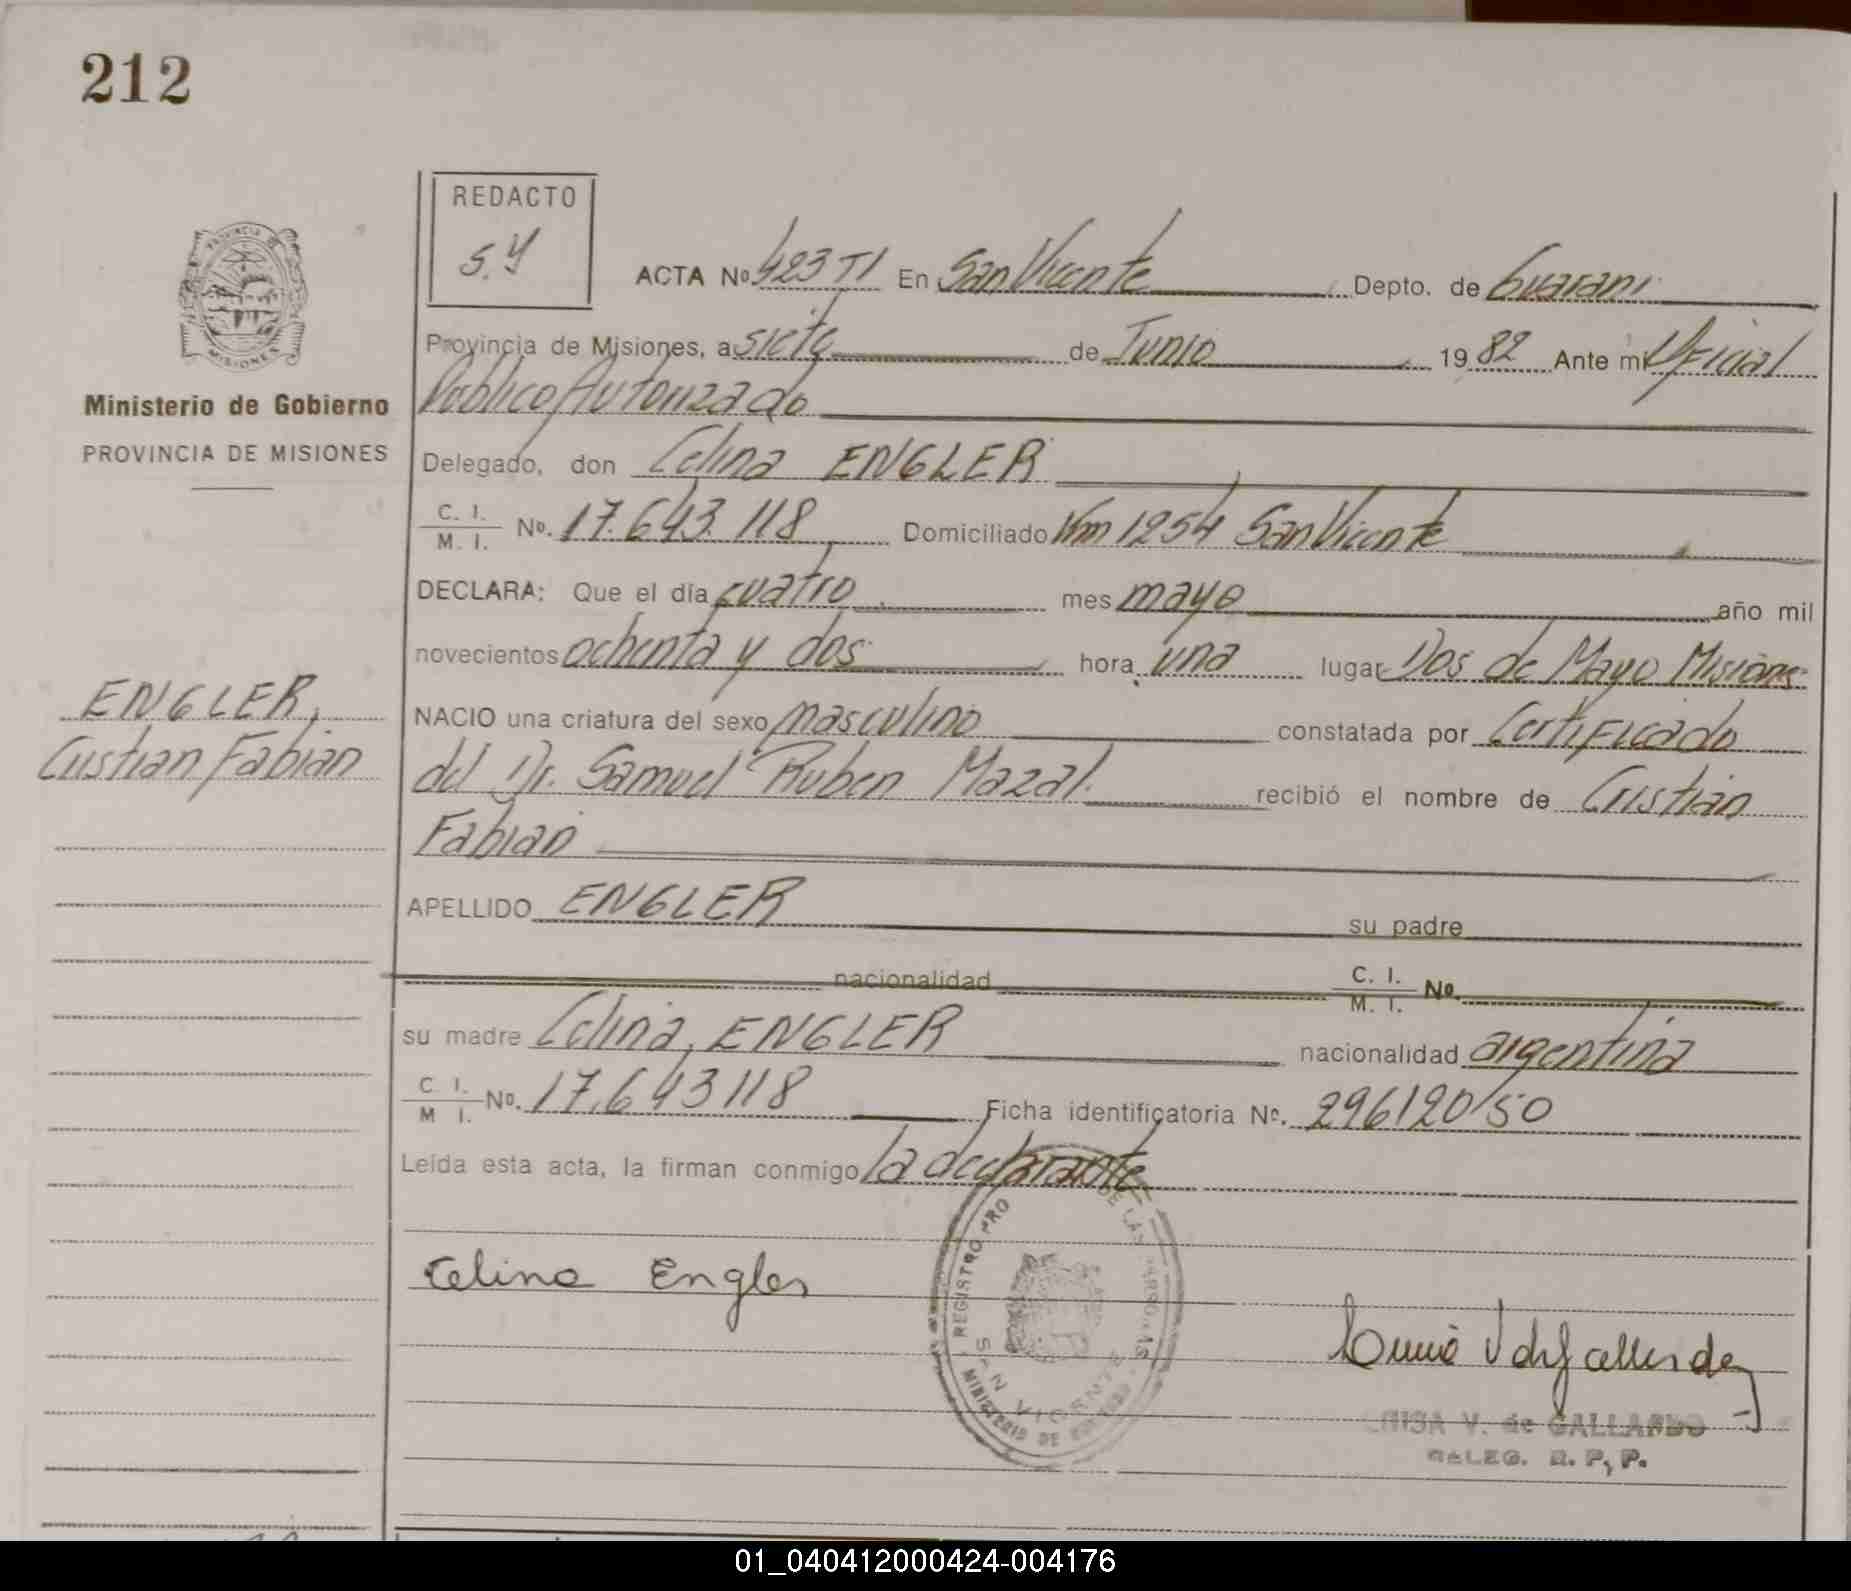 212
REDACTO
S.Y
PROVINCIA DE
MISIONES
ACTA No. 423 TI En San Vicente Depto. de Guarani
Provincia de Misiones, a siete de Junio 1982 Ante mi Oficial
Publico Autorizado
Ministerio de Gobierno
PROVINCIA DE MISIONES
Delegado, don Celina ENGLER
C. I. / M. I. No. 17.643.118 Domiciliado Km 1254 San Vicente
DECLARA: Que el día cuatro mes mayo año mil
novecientos ochenta y dos hora una lugar Dos de Mayo Misiones
ENGLER,
Cristian Fabian
NACIO una criatura del sexo masculino constatada por Certificado
del Dr. Samuel Ruben Mazal. recibió el nombre de Cristian
Fabian
APELLIDO ENGLER su padre
nacionalidad C. I. / M. I. No.
su madre Celina ENGLER nacionalidad argentina
C. I. / M. I. No. 17.643118 Ficha identificatoria No. 296120/50
Leída esta acta, la firman conmigo la declarante
Celina Engler
REGISTRO PRO DE LAS PERSONAS
SAN VICENTE
MINISTERIO DE GOBIERNO
LUISA V. de GALLARDO
DELEG. R. P. P.
01_040412000424-004176